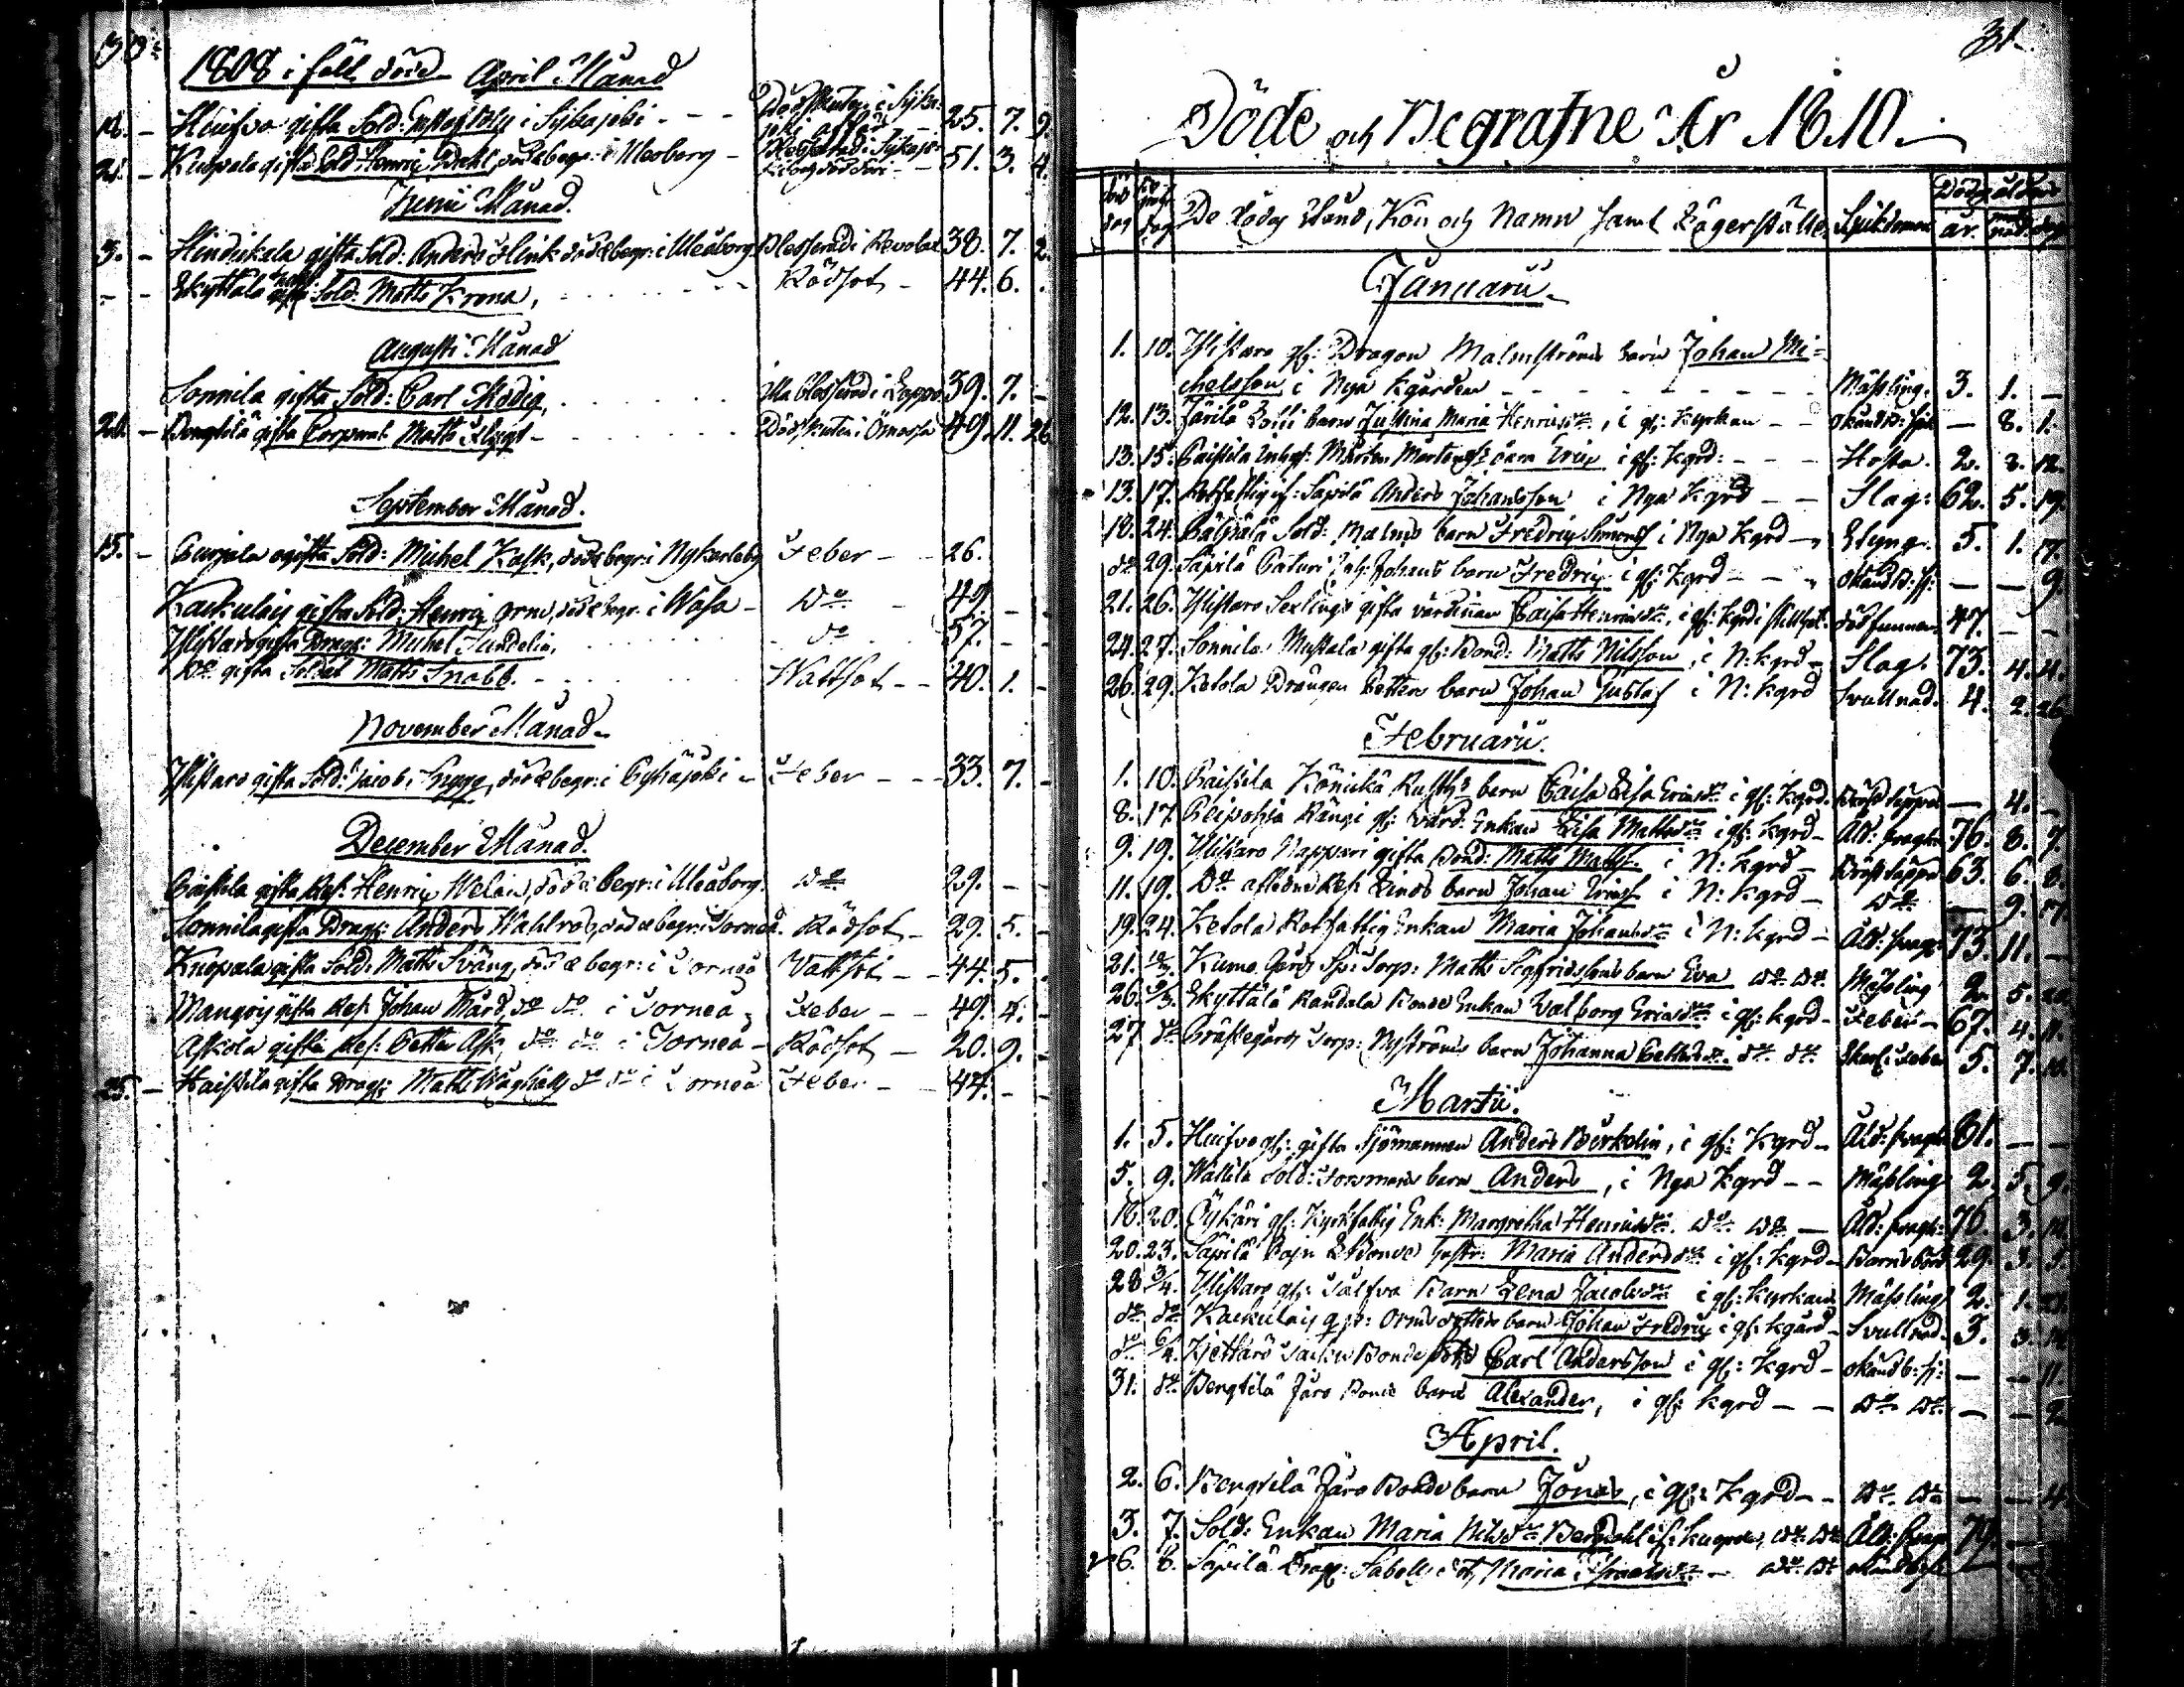 1808 i fält döde April Månad
18. - Huifvo gifta Sold: i Sykajoki - - - Dödskuten i Syka= 25. 7. 9.
joki
21. - Kuopala gifta Sold Henric Dahl, död & begr: i Uleoborg - Blesserad i Sykajo= 51. 3. 4.
Junii Månad.
3. - Hindrickala gifta Sold: Anders Flink död & begr: i Uleåborg Blesserad i Revolax 38. 7. 2.
- - Skyttälä gifta Sold: Matts Krona, Rödsot - 44. 6.
Augusti Månad
Sonnila gifta Sold: Carl Modig, Illa blesserad i Lappo 39. 7. -
21. - Bengtilä gifta Corporal Matts Flygt - Dödskuten i 49. 11. 26.
September Månad.
15. - ogifta Sold: Michel Kask, död & begr: i Nykarleby Feber - - 26.
Kaukulais gifta Sold: Henric Orm, död & begr: i Wasa - Do - 49. - -
Ylistaro gifta Drag: Michel Sundelin, do 57. - -
Do gifta Soldat Matts Snabb. Wattsot - - 40. 1. -
November Månad.
Ylistaro gifta Sold: Jacob Trygg, död & begr: i Pyhäjoki - Feber - - 33. 7. -
December Månad.
Paissila gifta Res: Henric Welan, död & begr: i Uleåborg. Do 29. - -
Sonnila gifta Drag: Anders Wahlroos, död & begr: i Torneå. Rödsot - 29. 5. -
Knopala gifta Sold: Matts Sväng, död & begr: i Torneå Vattsot - - 44. 5.
Mangois gifta Res: Johan Mård, do do i Torneå, Feber - - 49. 4. -
Askola gifta Res: Petter Ask, do do i Torneå - Rödsot - 20. 9. -
25. - Haissila gifta Drag: Matts Waghals do do i Torneå Feber - 44. - -
31.
Döde och Begrafne År 1810.
Död dag Begr: dag De dödas Stånd, Kön och Namn samt Lägerställe. Sjukdomar Dödas ålder år. månad dag
Januarii.
1. 10. Ylistaro gl: Dragon Malmströms barn Johan Mi=
chelsson i Nya Kgården - - - Mässling. 3. 1. -
12. 13. Järilä Lotti barn Justina Maria Henricsdr, i gl: Kyrkan - - okänd B: sjuk - 8. 1.
13. 15. Paissila Inhys: Mårten Mårtenss barn Eric i gl: Kgrd: - - - Hosta. 2. 3. 12.
13. 17. Rotfattig gl: Säpilä Anders Johansson i Nya Kgrd - - Slag: 62. 5. 19.
18. 24. Sold: Malms barn Fredric Simons i Nya Kgrd - Styng. 5. 1. 17.
do 29. Säpilä Johans barn Fredric i gl: Kgrd - - okänd B: sj: - - 9.
21. 26. Ylistaro Sexlings gifta värdinnan Caisa Henricsdr, i gl: kgrd död funnen 47. - -
24. 27. Sonnila Mustala gifta gl: Bond: Matts Nilsson, i N: kgrd - Slag. 73. 4. 4.
26. 29. Ketola Drängen Petters barn Johan Gustaf i N: kgrd Svullnad. 4. 2. 26.
Februarii.
1. 10. Paissila Rusth: barn Caisa Lisa Ericsdr i gl: Kgrd. Bröst täppa - 4. -
8. 17. Peipohja Rängi gl: Värd: Enkan Lisa Mattsdr i gl: kgrd - Åld: svagh: 76. 8. 7.
9. 19. Ylistaro Nappari gifta Bond: Matts Mattss. i N: kgrd - Bröst täppa 63. 6. 8.
11. 19. Do aflidne Res: Linds barn Johan Ericss. i N: kgrd - Do - 9. 17.
19. 24. Ketola Rotfattig Enkan Maria Johansdr i N: kgrd - Åld: svagh: 73. 11. -
21. Kumo Gård Sp: Torp: Matts Sigfridssons barn Eva do do Mässling 2. 5. 20.
26. Skyttälä Randala Bonde Enkan Walborg Ericsdr i gl: kgrd - Feber - 67. 4. 11.
27 do Prästegårds Torp: Nyströms barn Johanna Pettersdr. do do Skarl: Feber 5. 7.
Martii.
1. 5. Huifvo gl: gifta Sjömannen Anders Björkelin, i gl: Kgrd - Åld: svagh 81. - -
5. 9. Wallila Sold: Forsmans barn Anders, i Nya Kgrd - - Mässling 2. 5. 9.
16. 20. Öykäri gl: Kyrkfattig Enk: Margretha Henricsdr. do do - Åld: svagh: 76. 3.
20. 23. Säpilä hustr: Maria Andersdr i gl: kgrd - Barnsbörd 29. 3. 5.
28 3/4. Ylistaro gl: barn Lena Jacobsdr i gl: kyrkan Mässling 2. 1.
do do Kaukulais Orms dotters barn Johan Fredric i gl: kgård - Svullnad. 3. 3.
do 6/4. Kjettärä Bonde Carl Andersson i gl: Kgrd - okänd b: sj: - - 11.
31. do Bengtilä Järo Bonde barn Alexander, i gl: kgrd - - do do - - 2.
April.
2. 6. Bengtilä Järo Bonde barn Jonas, i gl: Kgrd - - do do - - 4.
3. 7. Sold: Enkan Maria Nilsdr Bergdahl do do Åld: svagh 79. -
6. 8. Säpilä Drag: Maria - do do -